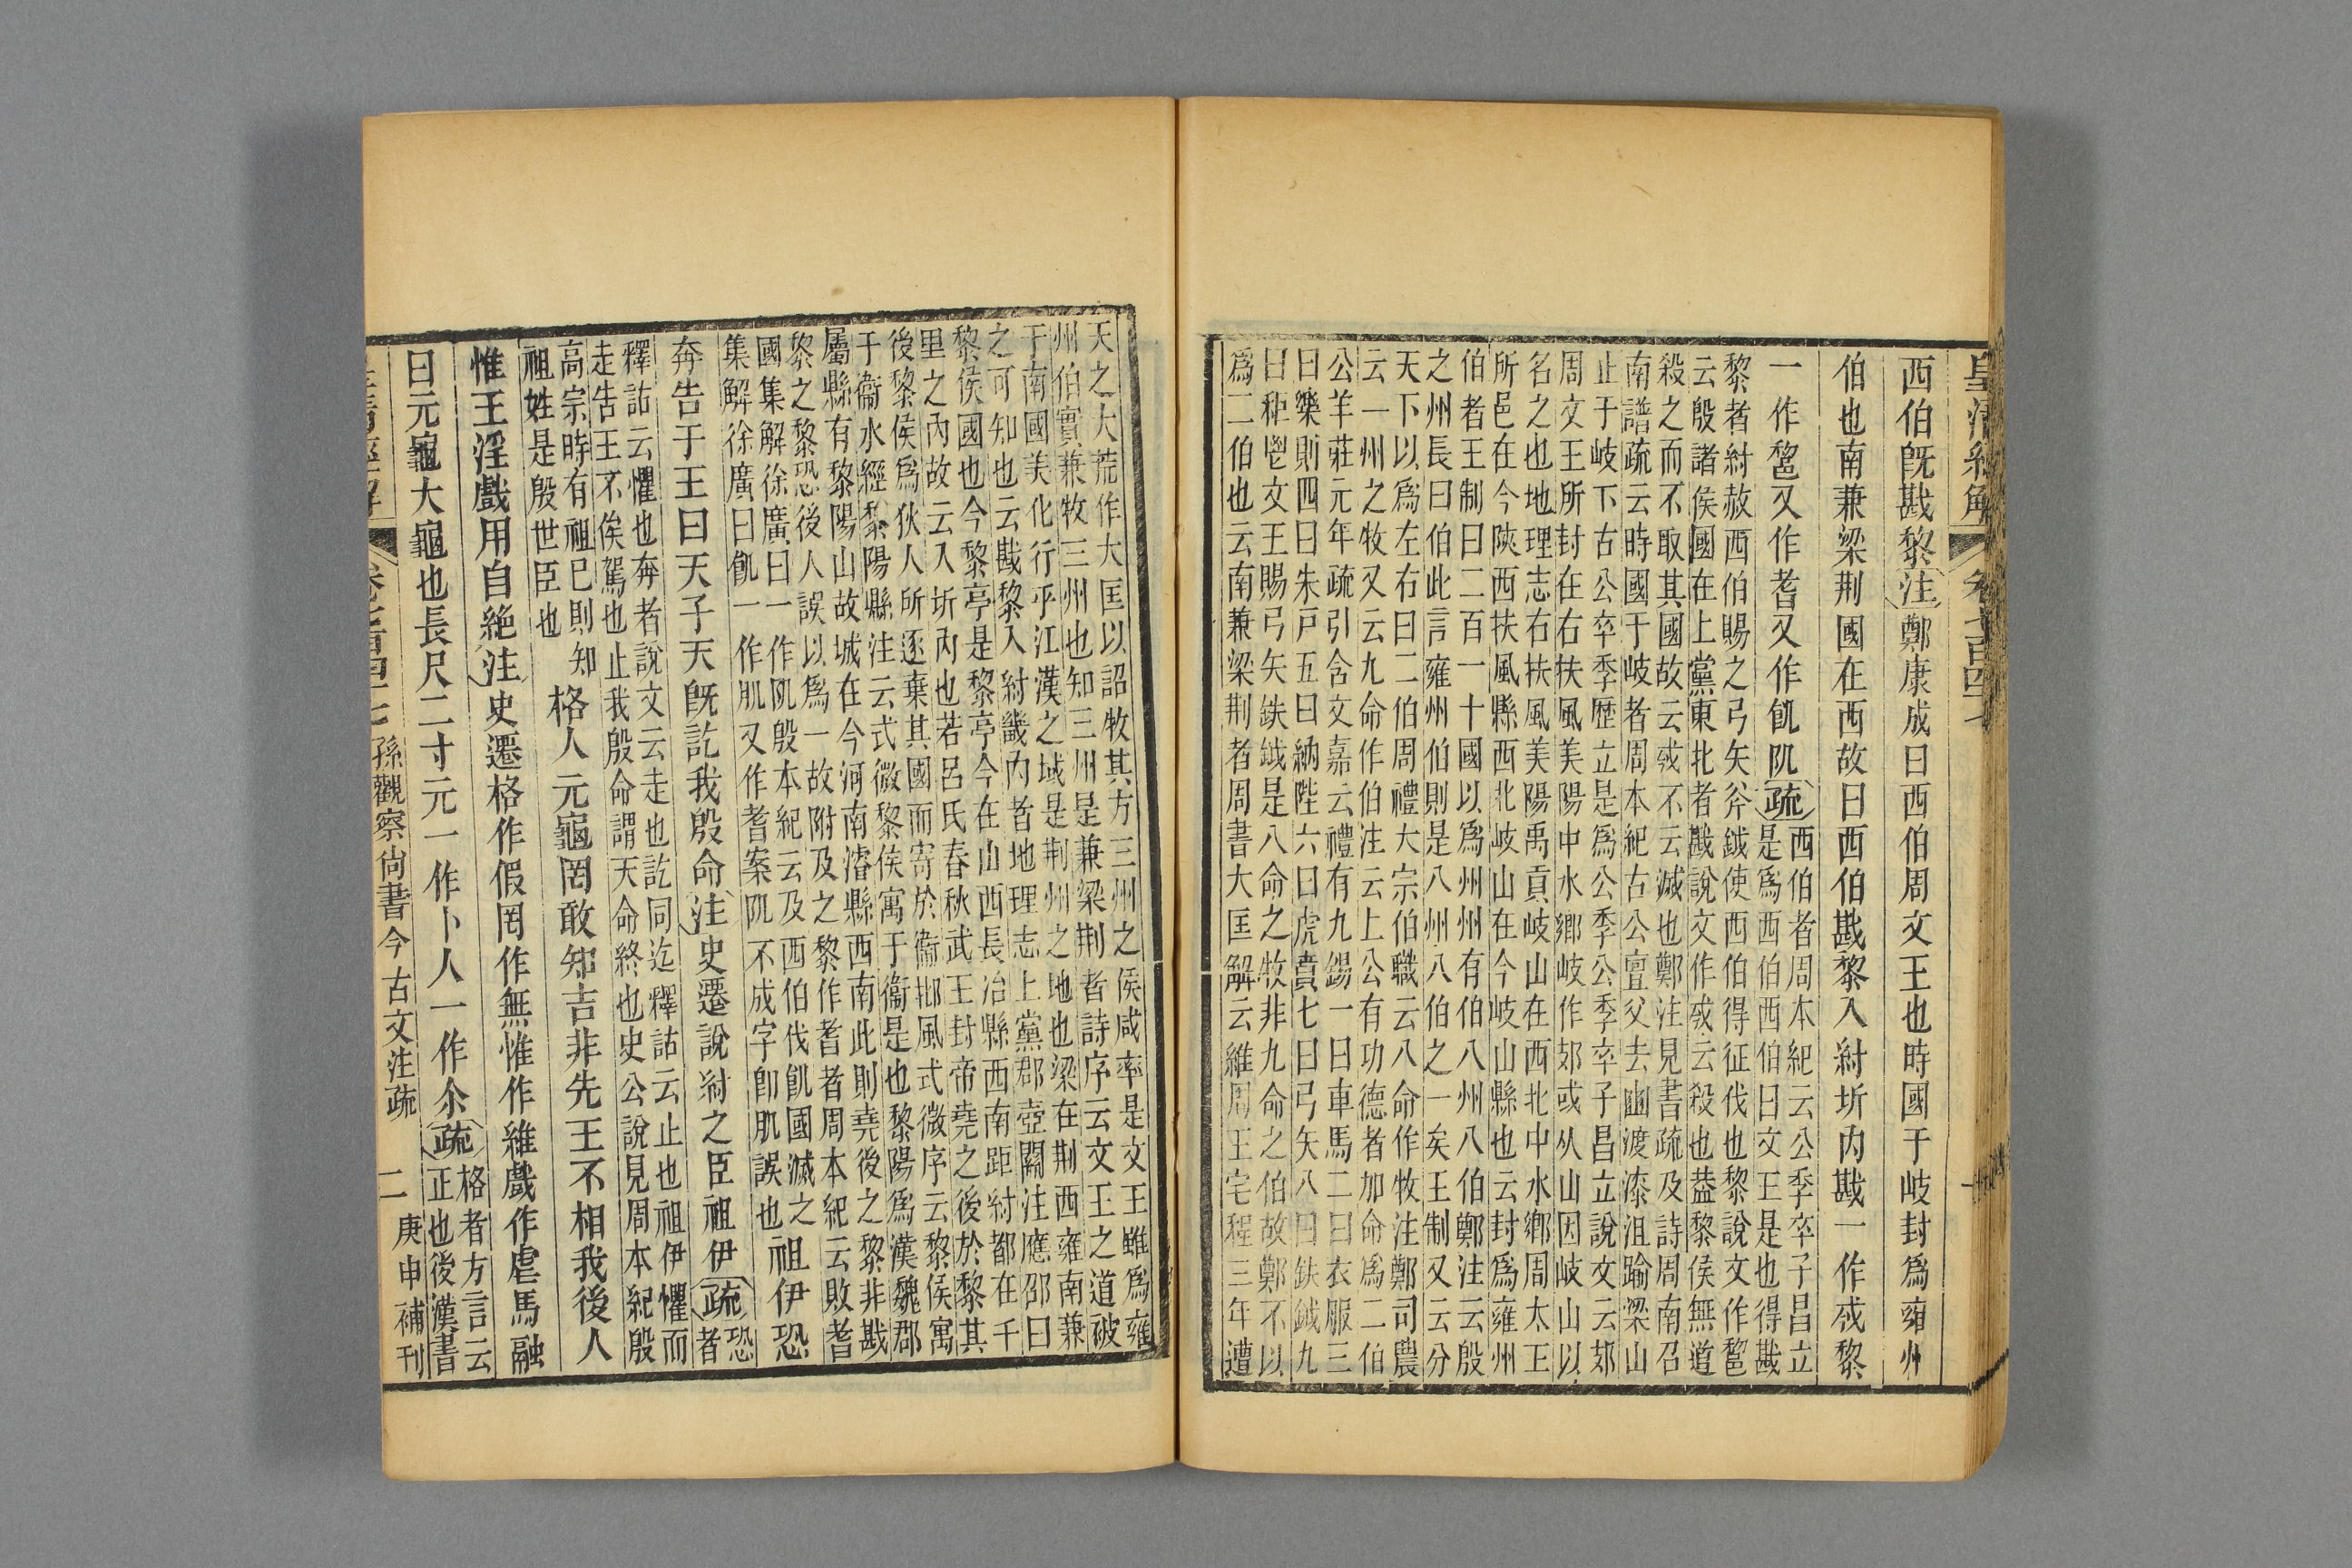 皇清經解 卷七百四十七 一
西伯旣戡黎注鄭康成曰西伯周文王也時國于岐封爲雍州
伯也南兼梁荆國在西故曰西伯戡黎入紂圻內戡一作䢦黎
一作𨛫又作耆又作飢阢疏西伯者周本紀云公季卒子昌立
是爲西伯西伯曰文王是也得戡
黎者紂赦西伯賜之弓矢斧鉞使西伯得征伐也黎說文作𨛫
云殷諸侯國在上黨東北者戡說文作㦰云殺也葢黎侯無道
殺之而不取其國故云㦰不云滅也鄭注見書疏及詩周南召
南譜疏云時國于岐者周本紀古公亶父去豳渡漆沮踰梁山
止于岐下古公卒季歷立是爲公季公季卒子昌立說文云郊
周文王所封在右扶風美陽中水鄉岐作郊或从山因岐山以
名之也地理志右扶風美陽禹貢岐山在西北中水鄉周太王
所邑在今陝西扶風縣西北岐山在今岐山縣也云封爲雍州
伯者王制曰二百一十國以爲州州有伯八州八伯鄭注云殷
之州長曰伯此言雍州伯則是八州八伯之一矣王制又云分
天下以爲左右曰二伯周禮大宗伯職云八命作牧注鄭司農
云一州之牧又云九命作伯注云上公有功德者加命爲二伯
公羊莊元年疏引含文嘉云禮有九錫一曰車馬二曰衣服三
曰樂則四曰朱戸五曰納陛六曰虎賁七曰弓矢八曰鈇鉞九
曰秬鬯文王賜弓矢鈇鉞是八命之牧非九命之伯故鄭不以
爲二伯也云南兼梁荆者周書大匡解云維周王宅程三年遭
天之大荒作大匡以詔牧其方三州之侯咸率是文王雖爲雍
州伯實兼牧三州也知三州是兼梁荆者詩序云文王之道被
于南國美化行乎江漢之域是荆州之地也梁在荆西雍南兼
之可知也云戡黎入紂畿內者地理志上黨郡壺關注應邵曰
黎侯國也今黎亭是黎亭今在山西長治縣西南距紂都在千
里之內故云入圻內也若呂氏春秋武王封帝堯之後於黎其
後黎侯爲狄人所逐棄其國而寄於衞邶風式微序云黎侯寓
于衞水經黎陽縣注云式微黎侯寓于衞是也黎陽爲漢魏郡
屬縣有黎陽山故城在今河南濬縣西南此則堯後之黎非戡
黎之黎恐後人誤以爲一故附及之黎作耆者周本紀云敗耆
國集解徐廣曰一作阢殷本紀云及西伯伐飢國滅之
集解徐廣曰飢一作肌又作耆案阢不成字卽肌誤也祖伊恐
奔告于王曰天子天旣訖我殷命注史遷說紂之臣祖伊疏恐
者
釋詁云懼也奔者說文云走也訖同迄釋詁云止也祖伊懼而
走告王不俟駕也止我殷命謂天命終也史公說見周本紀殷
高宗時有祖己則知
祖姓是殷世臣也
格人元龜罔敢知吉非先王不相我後人
惟王淫戲用自絶注史遷格作假罔作無惟作維戲作虐馬融
曰元龜大龜也長尺二寸元一作卜人一作尒疏格者方言云
正也後漢書
卷七百四十七 孫觀察尙書今古文注疏 二 庚申補刊